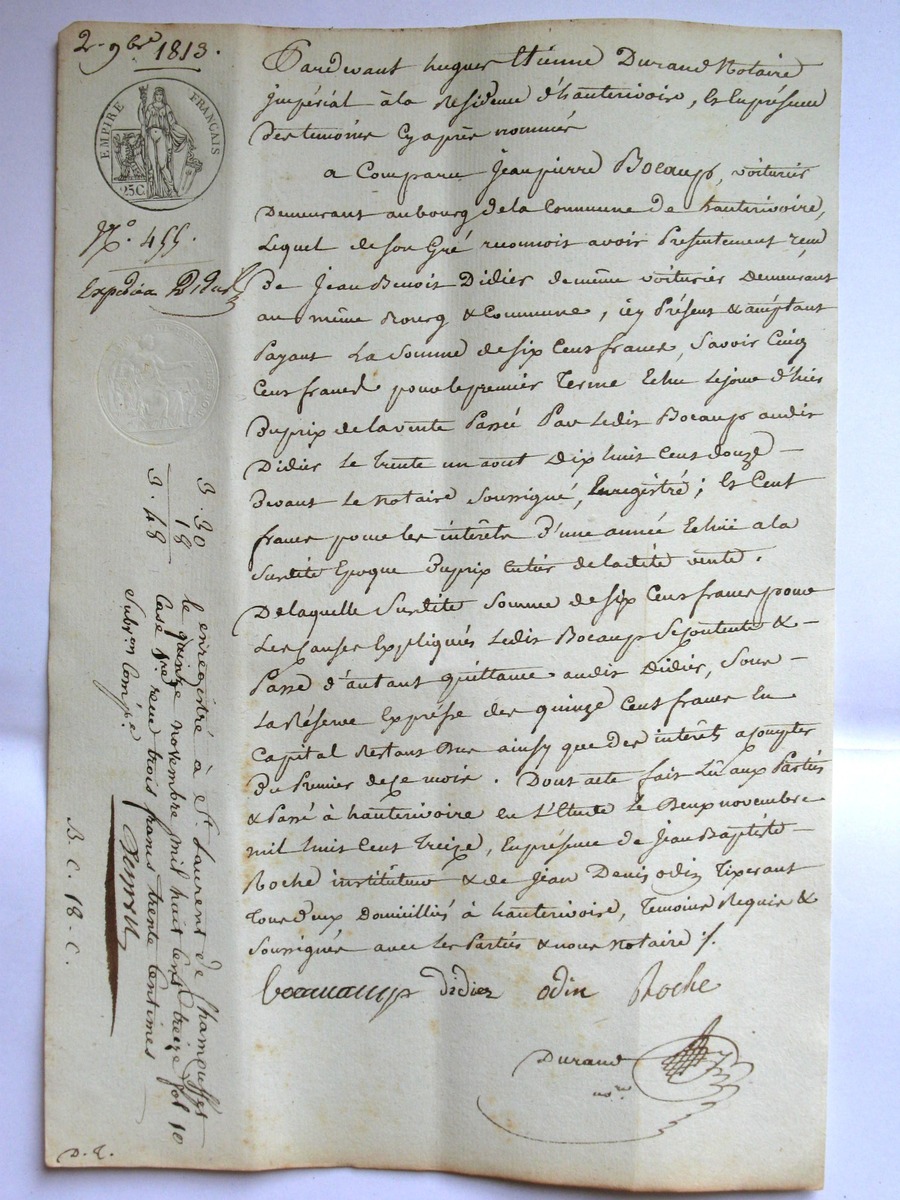 2. 9bre 1813.
EMPIRE FRANÇAIS
25C
N.º 455.
Expédiée Didier
Pardevant hugues Etienne Durand Notaire
impérial à la Residence d'hauterivoire, et En présence
des temoins Cy après nommés
a Comparu Jean pierre Bocaup, voiturier
Demeurant au bourg de la Commune de hauterivoire,
Lequel de son Gré reconnoit avoir Présentement reçu
De Jean Benoit Didier de même voiturier Demeurant
au même Bourg & Commune, icy Présent & acceptant
Payant La Somme de six Cent francs, Savoir Cinq
Cent francs pour le premier Terme Echu Le jour d'hier
Du prix de la vente Passée Par Ledit Bocaup audit
Didier Le trente un aout Dix huit Cent douze –
Devant Le Notaire Soussigné, Enregistré ; Et Cent
francs pour les intérêts D'une année Echüe a la
Surdite Epoque Du prix Entier de ladite vente.
De laquelle Surdite Somme de six Cent francs pour
Les causes Expliquées Ledit Bocaup Se contente & –
Passe d'autant quittance audit Didier, Sous –
La Réserve Expresse des quinze Cent francs En
Capital Restant Dus ainsy que des interêts a compter
Du Premier de Ce mois. Dont acte fait Lû aux Parties
& Passé à hauterivoire en L'Etude Le Deux novembre
mil huit Cent Treize, En présence de Jean Baptiste –
Roche instituteur & de Jean Denis Odin Tixerant
Tous deux domiciliés à hauterivoire, Temoins Requis &
Soussignés avec Les Parties & nous Notaire ./.
Beaucamp Didier Odin Roche
Durand
nore
3. 30
18
3. 48
enregistré à St. Laurent de Chamousset
le quinze novembre mil huit cent treize fol 10
Case 1re reçu trois francs trente Centimes
Subvon Comp.e
B. C. 18. C.
D. D.